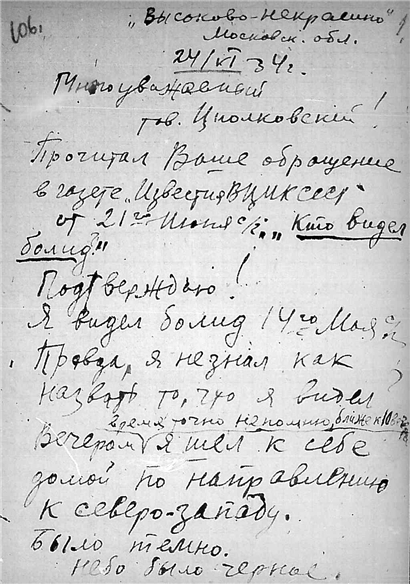 106.
"Высоково-некрасино"
Московск. обл.
24/VI 34 г.
Многоуважаемый
тов. Циолковский!
Прочитал Ваше обращение
в газете "Известия ВЦИК СССР"
от 21го Июня с/г. "Кто видел
болид?"
Подтверждаю!
Я видел болид 14го Мая с/г.
Правда, я незнал как
назвать то, что я видел
время точно непомню, ближе к 10
Вечером я шел к себе
домой по направлению
к северо-западу.
Было темно.
Небо было черное.